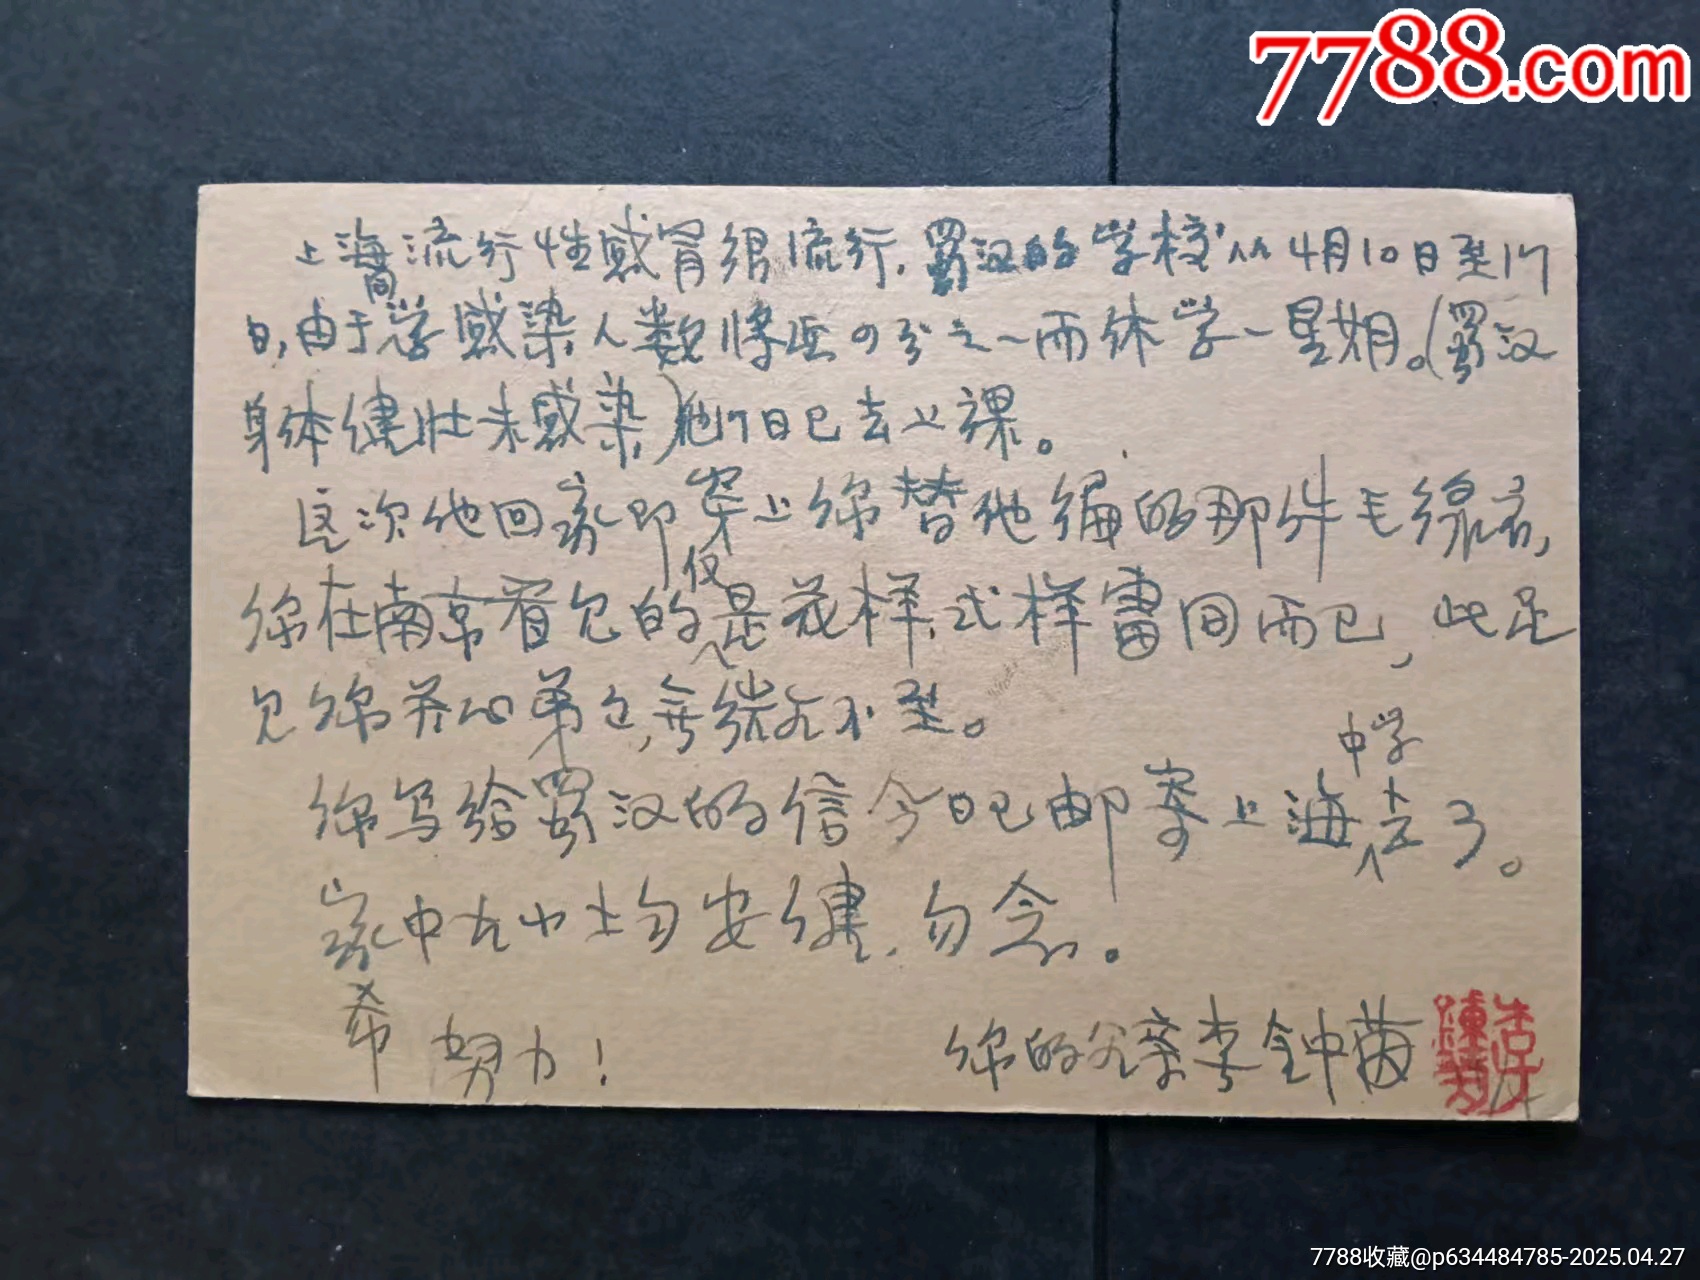 7788.com
上海流行性感冒很流行,蜀汉的学校从4月10日至17
日,由于学感染人数将近4分之一而休学一星期。(蜀汉
身体健壮未感染)他17日已去上课。
这次他回家即穿上你替他编的那件毛线衣,
你在南京看见的仅是花样,式样雷同而已,此足
见你关心弟
你写给蜀汉的信今日已邮寄上海中学去了。
家中大小均安健,勿念。
希
努力!
你的父亲李钟
7788收藏@p634484785-2025.04.27